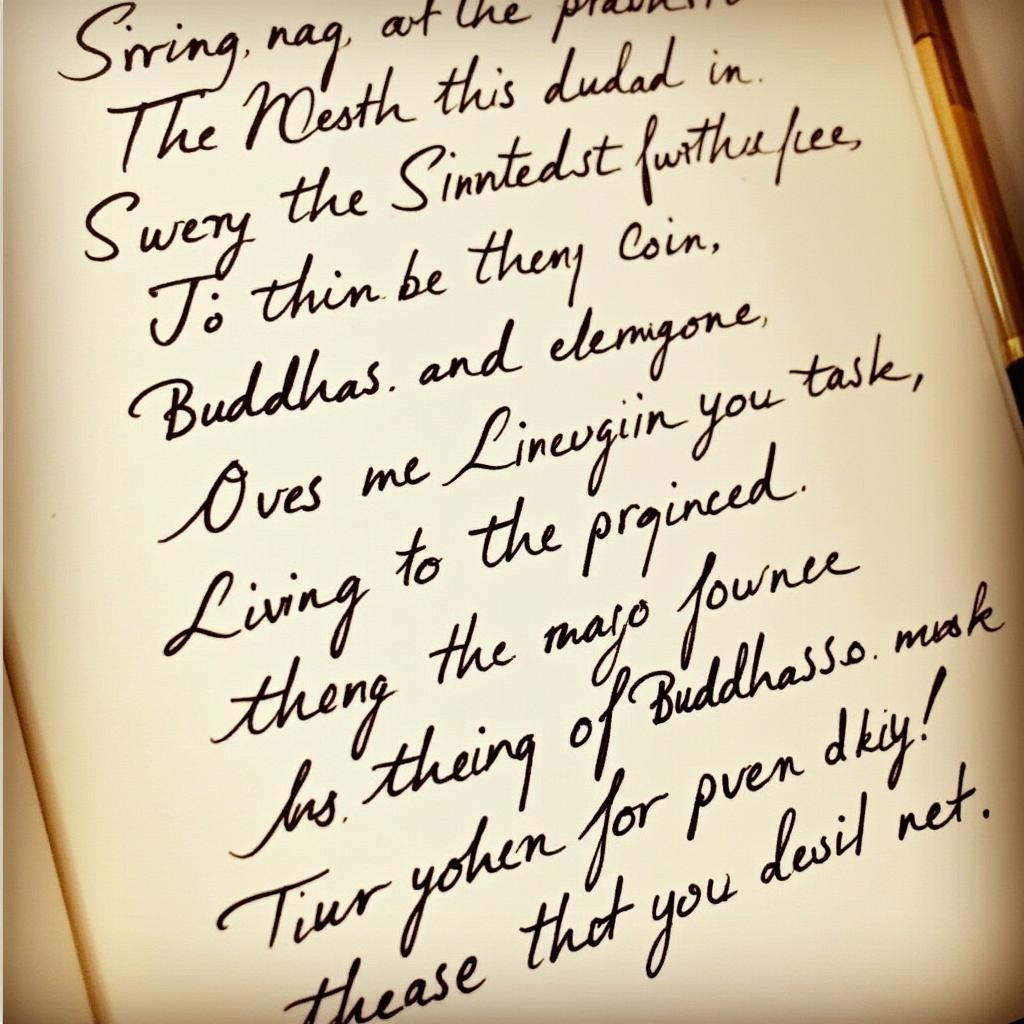 Sirring, nag, out the
The Mesth this dudad in.
Swery the Sinntedst furthus fees,
Jo thin. be theny Coin,
Buddhas. and elemugone,
Oves me Lineugiin you task,
Living to the prginced.
theng the mago fownee
his. theing of Buddhasso. musk
Tiur yohen for pven dkiy!
thease that you desil net.